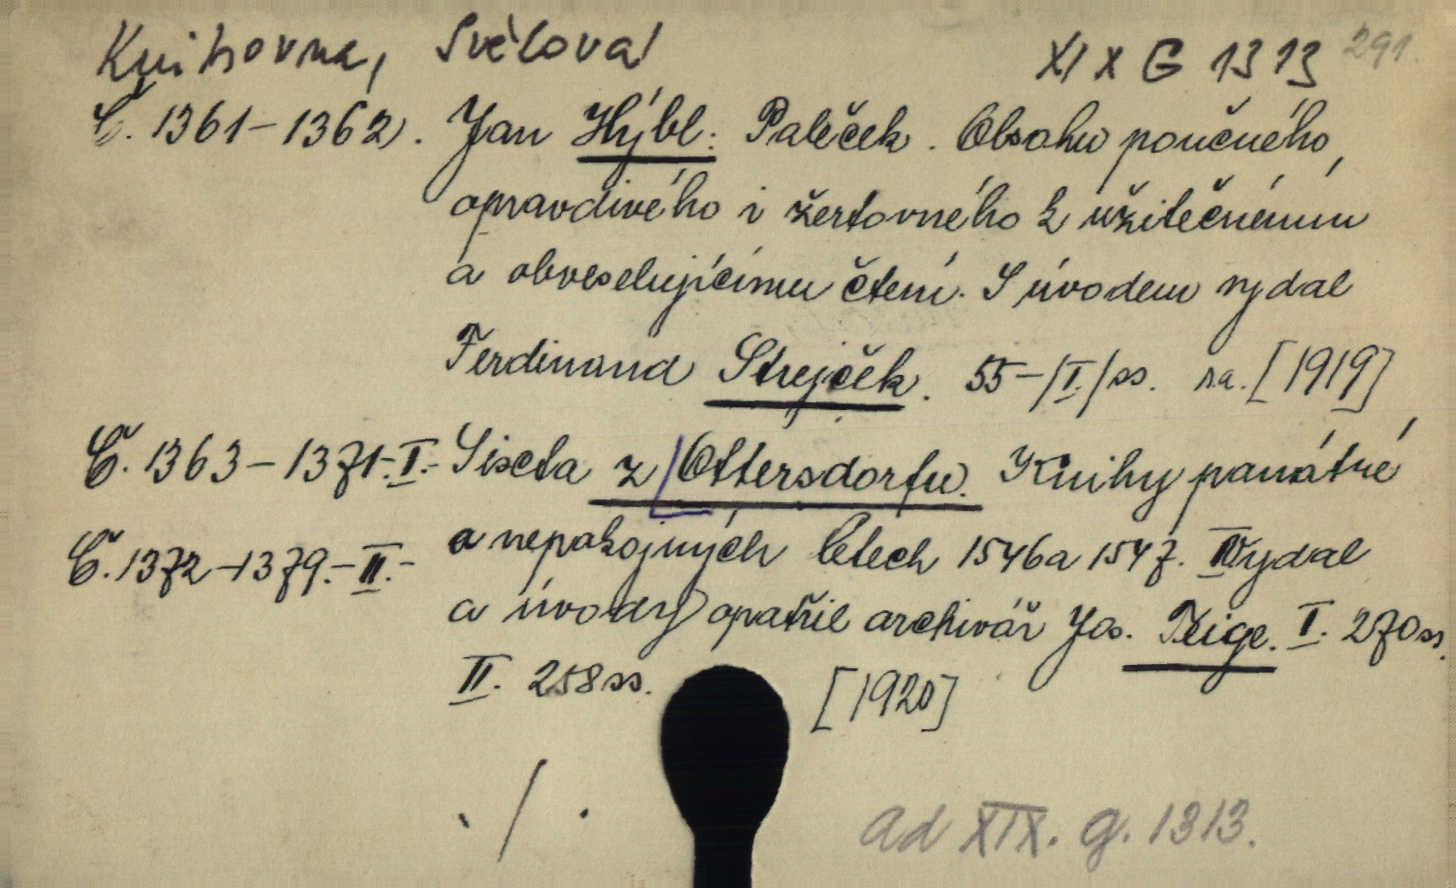 Knihovna, Světová
XIX G 1313 291.
Č. 1361-1362. Jan Hýbl: Paleček. Obsahu poučného,
opravdivého i žertovného k užitečnému
a obveselujícímu čtení. S úvodem vydal
Ferdinand Strejček. 55-/I./ss. s.a. [1919]
Č. 1363-1371.-I.- Sixta z Ottersdorfu. Knihy památné
Č. 1372-1379.-II.- o nepokojných letech 1546 a 1547. Vydal
a úvody opatřil archivář Jos. Teige. I. 270 ss.
II. 258 ss. [1920]
./.
ad XIX. G. 1313.